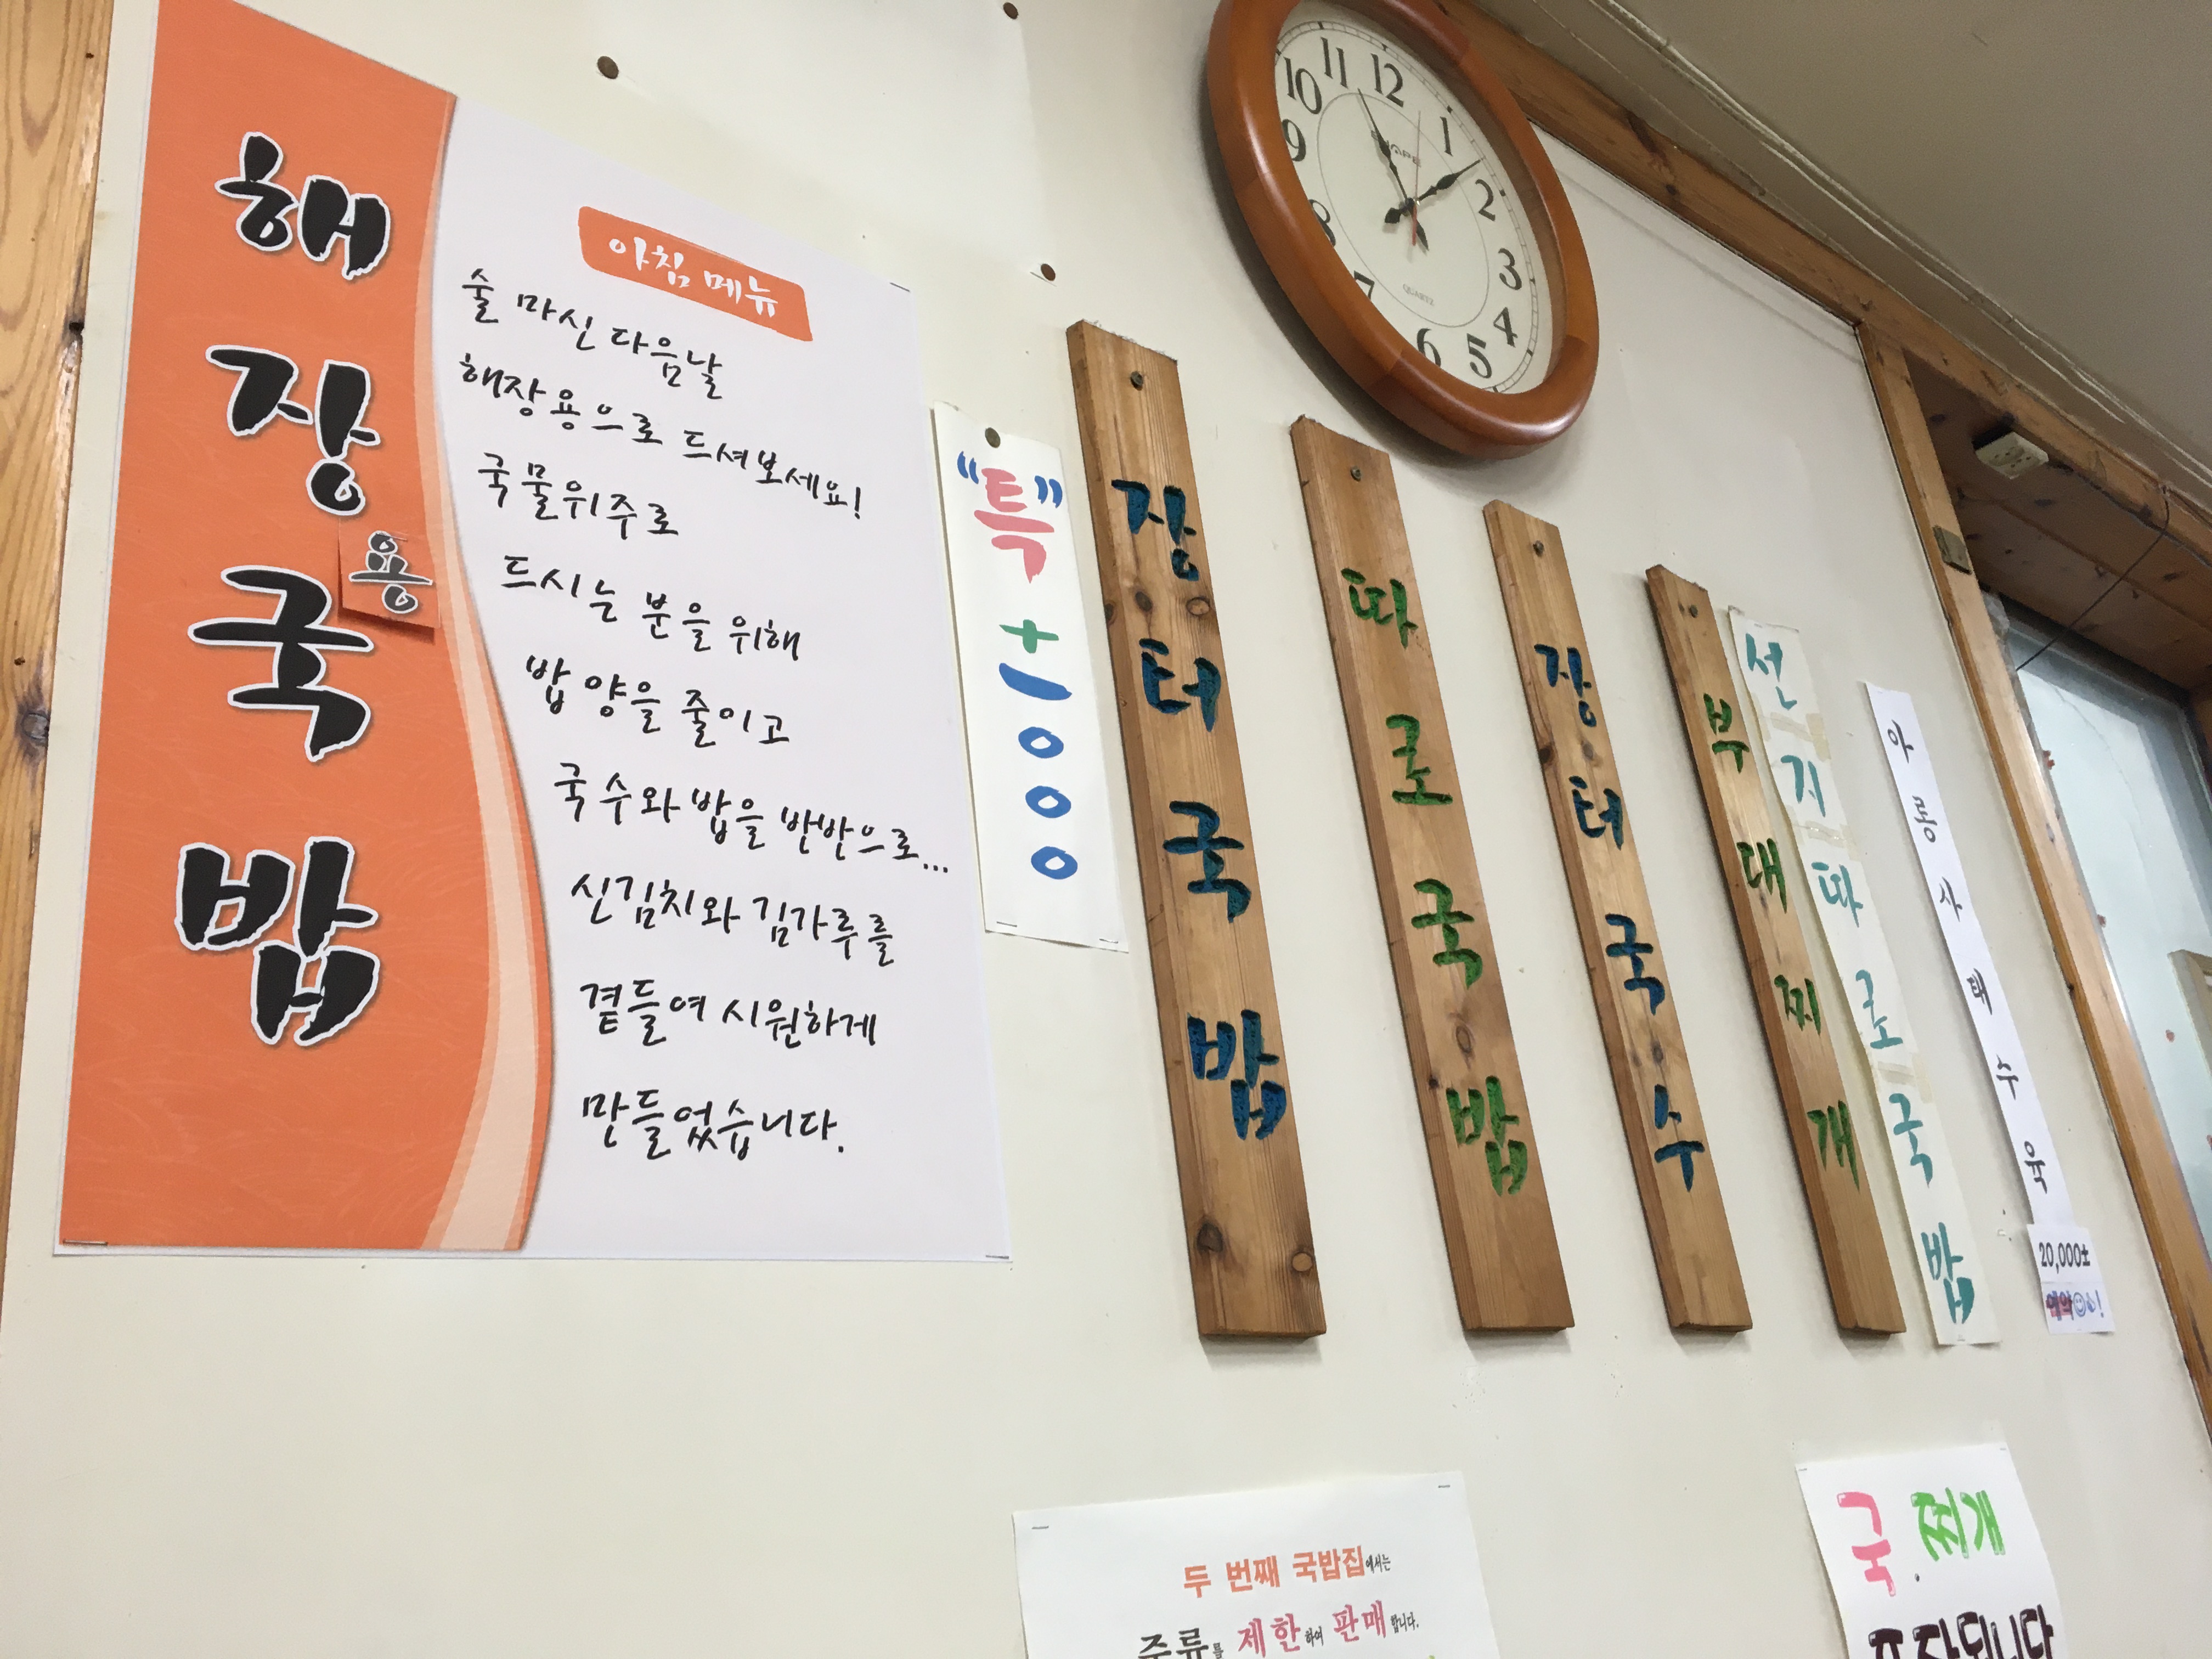 해장용국밥
아침 메뉴
술 마신 다음날
해장용으로 드셔보세요!
국물위주로
드시는 분을 위해
밥 양을 줄이고
국수와 밥을 반반으로...
신김치와 김가루를
곁들여 시원하게
만들었습니다.
"특"+1000
장터국밥
따로국밥
장터국수
부대찌개
선지따로국밥
아롱사태수육
20,000
예약 !
11 12 1
10 2
9 3
8 4
7 6 5
QUARTZ
두 번째 국밥집에서는
주류를 제한하여 판매합니다.
국.찌개
포장됩니다